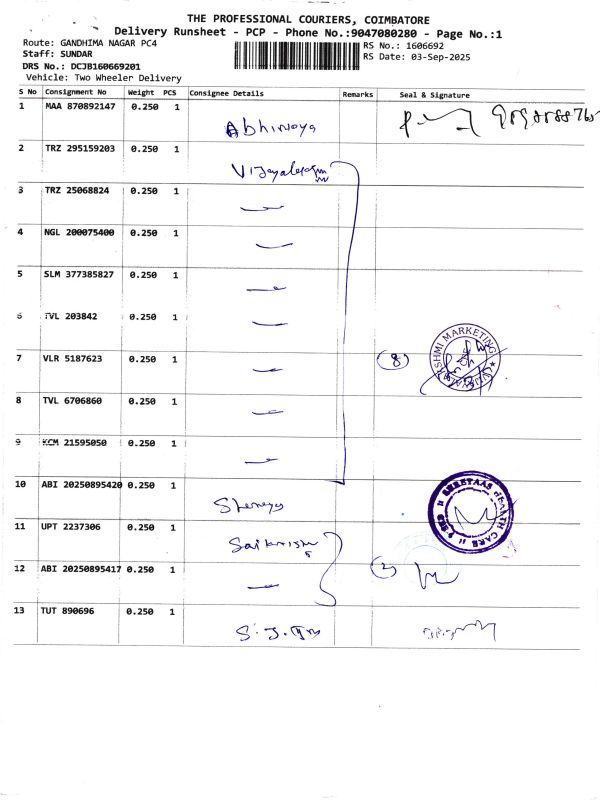 THE PROFESSIONAL COURIERS, COIMBATORE
Delivery Runsheet - PCP - Phone No.:9047080280 - Page No.:1
Route: GANDHIMA NAGAR PC4
RS No.: 1606692
Staff: SUNDAR
RS Date: 03-Sep-2025
DRS No.: DCJB160669201
Vehicle: Two Wheeler Delivery
S No Consignment No Weight PCS Consignee Details Remarks Seal & Signature
1 MAA 870892147 0.250 1
Abhinaya
2 TRZ 295159203 0.250 1
3 TRZ 25068824 0.250 1
4 NGL 200075400 0.250 1
5 SLM 377385827 0.250 1
6 TVL 203842 0.250 1
7 VLR 5187623 0.250 1 (8)
MARKETING
8 TVL 6706860 0.250 1
9 KCM 21595050 0.250 1
10 ABI 20250895420 0.250 1
HEALTH CARE
11 UPT 2237306 0.250 1
12 ABI 20250895417 0.250 1
13 TUT 890696 0.250 1